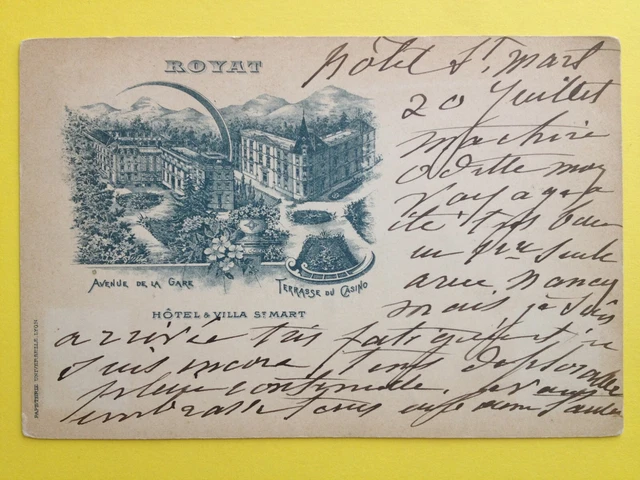 ROYAT
Hôtel St. Mart
20 Juillet
ma chère
Odette mon
voyage a
été très bon
en 1ère seule
avec Nancy
mais je suis
arrivée très fatiguée et je
suis encore, temps déplorable
pluie continuelle. je vous
embrasse tous
AVENUE DE LA GARE
TERRASSE DU CASINO
HÔTEL & VILLA ST MART
PAPETERIE UNIVERSELLE, LYON